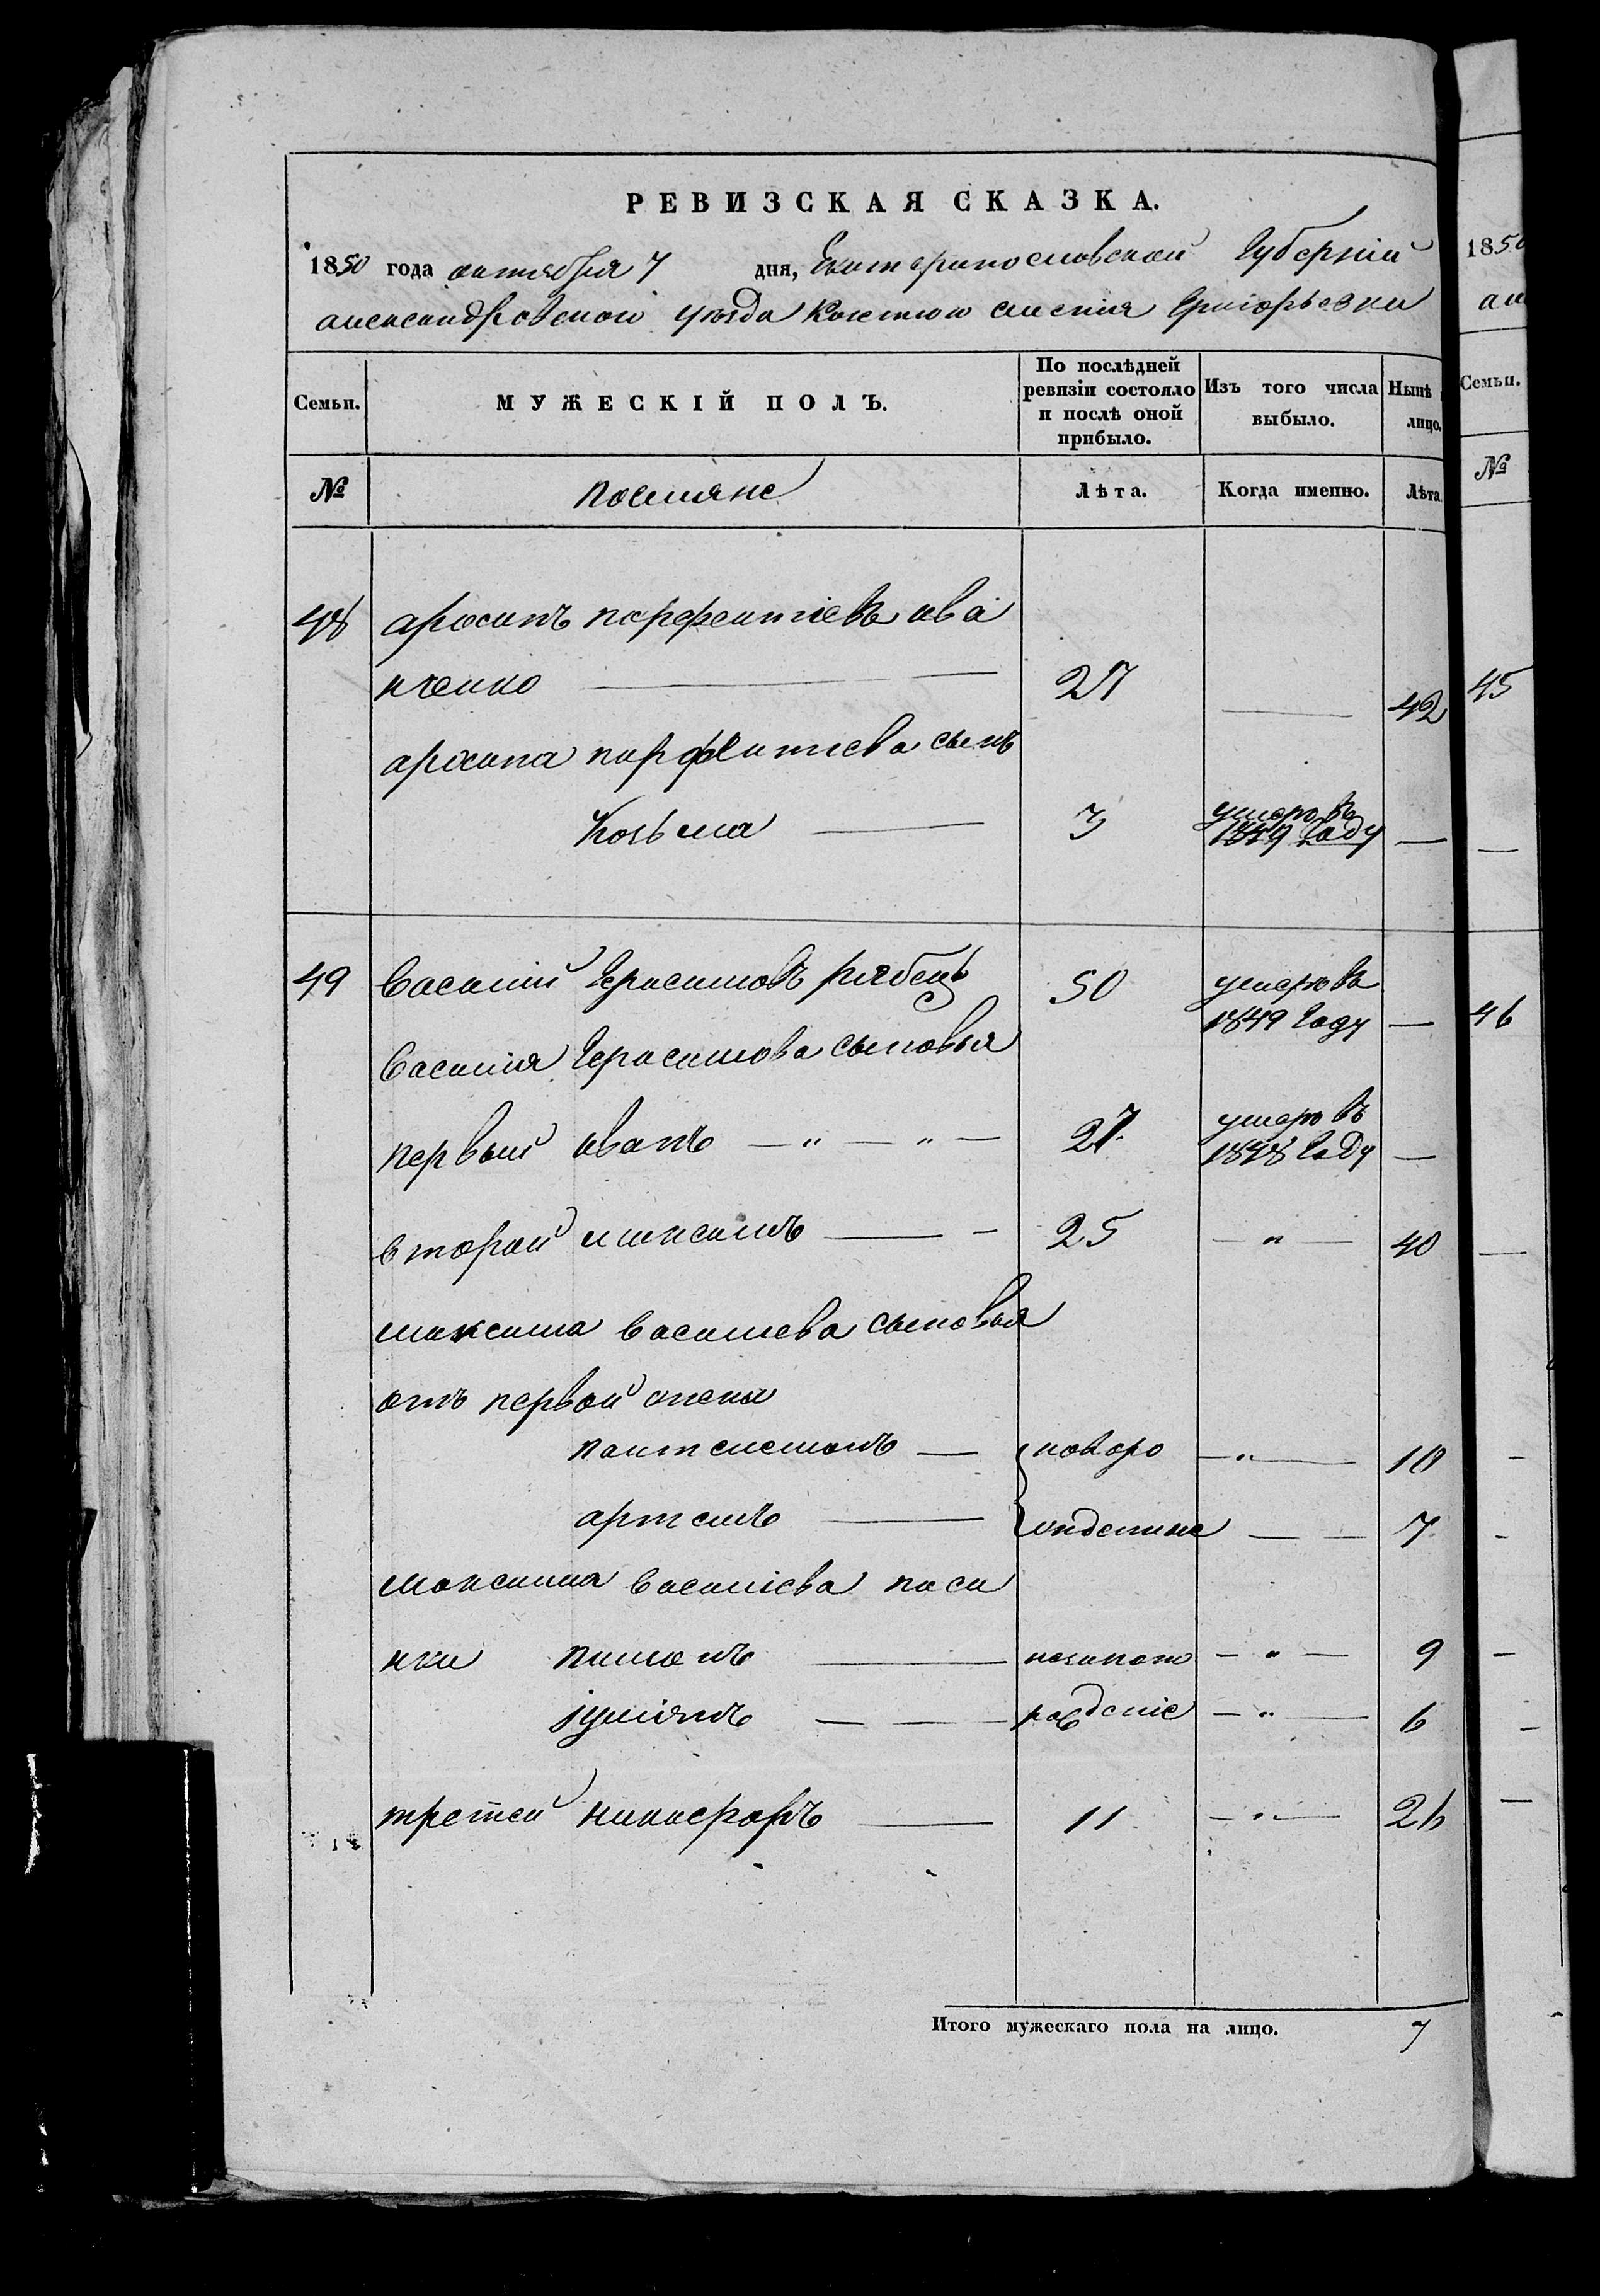 РЕВИЗСКАЯ СКАЗКА.
1850 года октября 7 дня, Екатеринославской Губерніи
александровскаго уѣзда имѣнія Григорьевки
Семьи. МУЖЕСКІЙ ПОЛЪ. По послѣдней ревизіи состояло и послѣ оной прибыло. Изъ того числа выбыло. Нынѣ лицо.
№ поселяне Лѣта. Когда именно. Лѣта
48 архипъ парфентіевъ ива
нченко 27 42
архипа парфентіева сынъ
Козьма 3 умеръ въ 1849 Году —
49 Василій Герасимовъ рябецъ 50 умеръ въ 1849 Году —
Василія Герасимова сыновья
первый иванъ 27 умеръ въ 1848 Году —
второй максимъ 25 40
максима василіева сыновья
отъ первой жены
пантелемонъ новоро 10
артемъ жденные 7
максима василіева паси
нки пименъ 9
іуліянъ рождение 6
третей никифоръ 11 26
Итого мужескаго пола на лицо. 7
1850
Семьи.
№
45
46